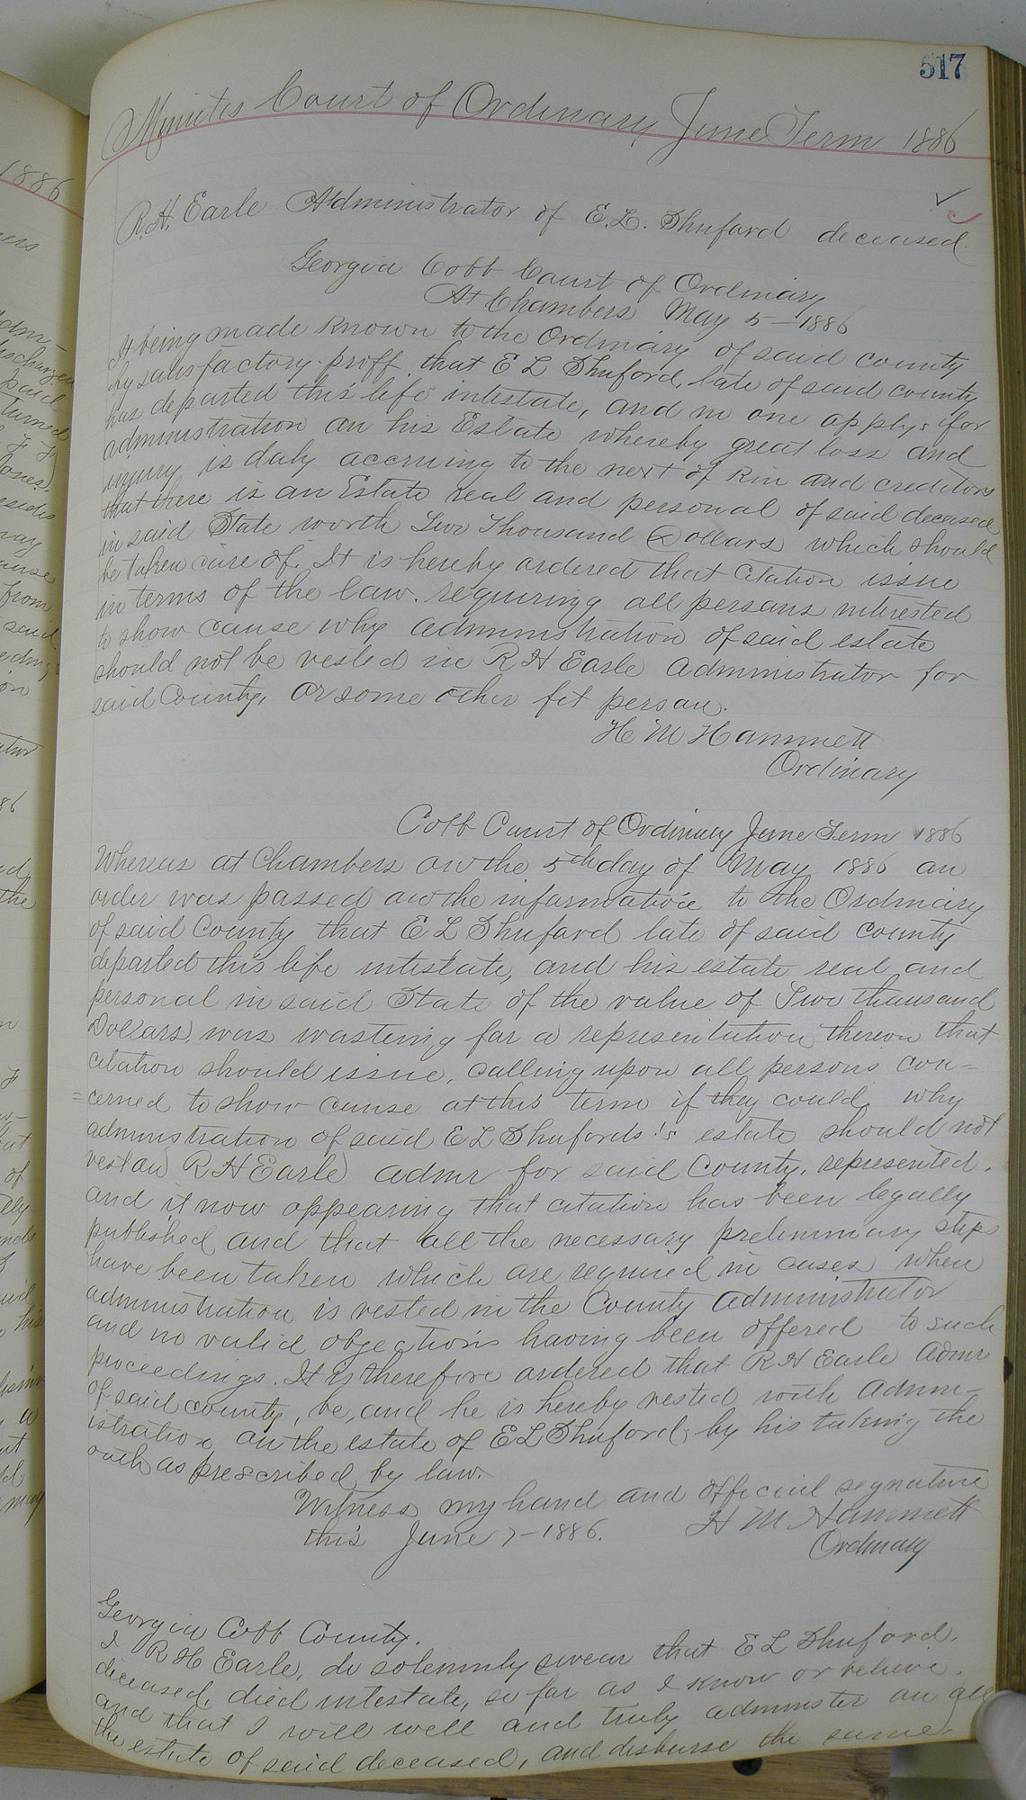 517
Minutes Court of Ordinary June Term 1886
R.H. Earle Administrator of E.L. Shuford deceased.
Georgia Cobb Court of Ordinary
At Chambers May 5-1886
It being made known to the Ordinary of said county
by satisfactory proff, that E L Shuford, late of said county
has departed this life intestate, and no one applys for
administration on his Estate whereby great loss and
injury is daly accruing to the next of kin and creditors
that there is an Estate real and personal of said deceased
in said State worth Two Thousand Dollars which should
be taken care of. It is hereby ordered that citation issue
in terms of the law. requiring all persons interested
to show cause why administration of said estate
should not be vested in R H Earle administrator for
said County, or some other fit person.
H M Hammett
Ordinary
Cobb Court of Ordinary June Term 1886
Whereas at Chambers on the 5th day of May 1886 an
order was passed on the information to the Ordinary
of said County that E L Shuford late of said county
departed this life intestate, and his estate real and
personal in said State of the value of Two thousand
Dollars, was wasteing for a representation thereon that
citation should issue, calling upon all persons con=
=cerned to show cause at this term if they could, why
administration of said E L Shufords's estate should not
vest in R H Earle admr for said County, represented.
and it now appearing that citation has been legally
published, and that all the necessary preliminary steps
have been taken which are required in cases when
administration is vested in the County administrator
and no valid objections having been offered to such
proceedings. It is therefore ordered that R H Earle admr
of said county, be, and he is hereby vested with admin-
istration on the estate of E L Shuford, by his taking the
oath as prescribed by law.
Witness my hand and official segnature
this June 7-1886.
H M Hammett
Ordinary
Georgia Cobb County.
I R H Earle, do solemnly swear that E L Shuford.
deceased, died intestate, so far as I know or believe.
and that I will well and truly administer on all
the estate of said deceased, and disburse the same.